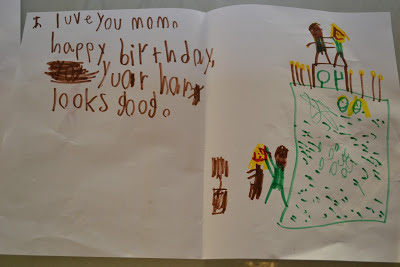 I luve you mom.
happy birthday,
yuar
looks goog.